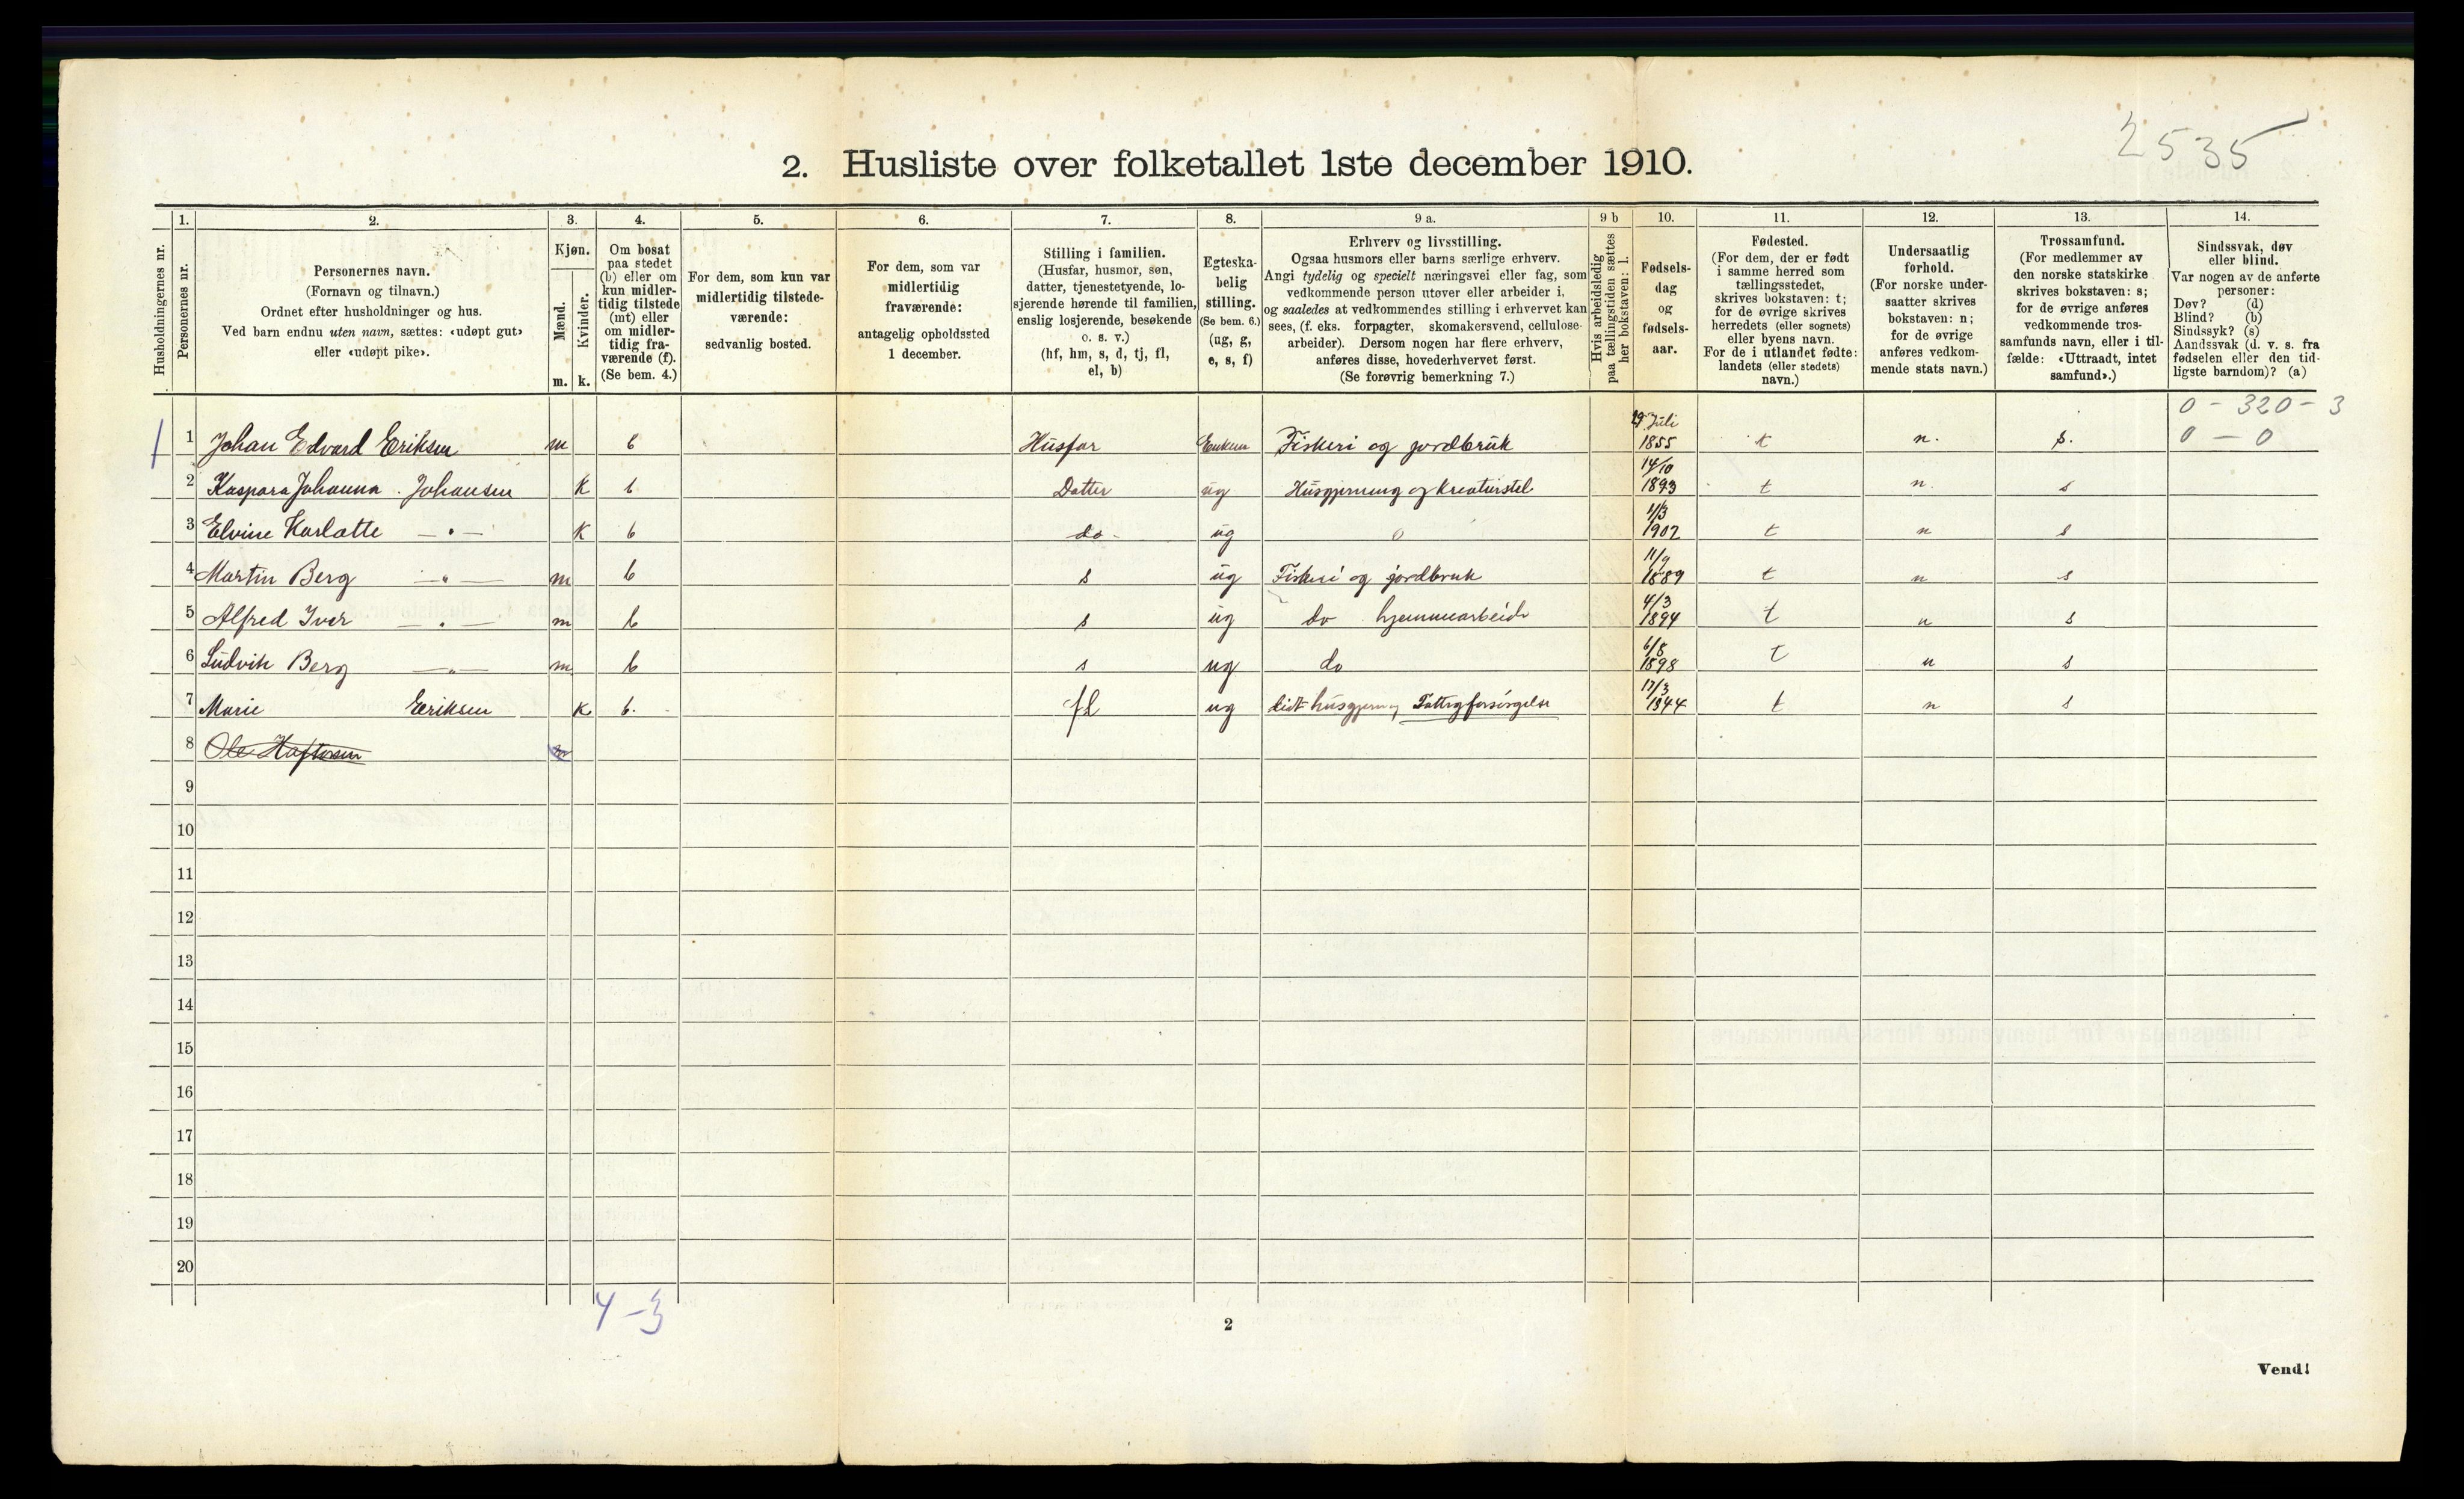 2535
2. Husliste over folketallet 1ste december 1910.
Husholdningernes nr.
1.
Personernes nr.
2.
Personernes navn.
(Fornavn og tilnavn.)
Ordnet efter husholdninger og hus.
Ved barn endnu uten navn, sættes: «udøpt gut»
eller «udøpt pike».
3.
Kjøn.
Mænd.
Kvinder.
m. k.
4.
Om bosat
paa stedet
(b) eller om
kun midler-
tidig tilstede
(mt) eller
om midler-
tidig fra-
værende (f).
(Se bem. 4.)
5.
For dem, som kun var
midlertidig tilstede-
værende:
sedvanlig bosted.
6.
For dem, som var
midlertidig
fraværende:
antagelig opholdssted
1 december.
7.
Stilling i familien.
(Husfar, husmor, søn,
datter, tjenestetyende, lo-
sjerende hørende til familien,
enslig losjerende, besøkende
o. s. v.)
(hf, hm, s, d, tj, fl,
el, b)
8.
Egteska-
belig
stilling.
(Se bem. 6.)
(ug, g,
e, s, f)
9 a.
Erhverv og livsstilling.
Ogsaa husmors eller barns særlige erhverv.
Angi tydelig og specielt næringsvei eller fag, som
vedkommende person utøver eller arbeider i,
og saaledes at vedkommendes stilling i erhvervet kan
sees, (f. eks. forpagter, skomakersvend, cellulose-
arbeider). Dersom nogen har flere erhverv,
anføres disse, hovederhvervet først.
(Se forøvrig bemerkning 7.)
9 b
Hvis arbeidsledig
paa tællingstiden sættes
her bokstaven: l.
10.
Fødsels-
dag
og
fødsels-
aar.
11.
Fødested.
(For dem, der er født
i samme herred som
tællingsstedet,
skrives bokstaven: t;
for de øvrige skrives
herredets (eller sognets)
eller byens navn.
For de i utlandet fødte:
landets (eller stedets)
navn.)
12.
Undersaatlig
forhold.
(For norske under-
saatter skrives
bokstaven: n;
for de øvrige
anføres vedkom-
mende stats navn.)
13.
Trossamfund.
(For medlemmer av
den norske statskirke
skrives bokstaven: s;
for de øvrige anføres
vedkommende tros-
samfunds navn, eller i til-
fælde: «Uttraadt, intet
samfund».)
14.
Sindssvak, døv
eller blind.
Var nogen av de anførte
personer:
Døv? (d)
Blind? (b)
Sindssyk? (s)
Aandssvak (d. v. s. fra
fødselen eller den tid-
ligste barndom)? (a)
0 - 320 - 3
0 - 0
1 Johan Edvard Eriksen m b Husfar Enkem Fiskeri og jordbruk 29 Juli 1855 t n. s.
2 Kaspara Johanna Johansen K b Datter ug Husgjerning og Kreaturstel 14/10 1893 t n. s
3 Elvine Karlotte — " — K b do ug 0 1/3 1902 t n s
4 Martin Berg — " — m b s ug Fiskeri og jordbruk 11/9 1889 t n s
5 Alfred Iver — " — m b s ug do hjemmearbeide 4/3 1894 t n s
6 Ludvik Berg — " — m b s ug do 6/8 1898 t n s
7 Marie Eriksen K b. fl ug lidt husgjerning Fattigforsörgelse 17/3 1844 t n s
8 Ole Haftorsen m
9
10
11
12
13
14
15
16
17
18
19
20
4-3
2
Vend!